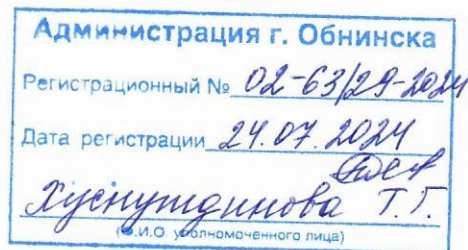 Администрация г. Обнинска
Регистрационный № 02-63/29-2024
Дата регистрации 24.07.2024
Хуснутдинова Т.Г.
(Ф.И.О. уполномоченного лица)